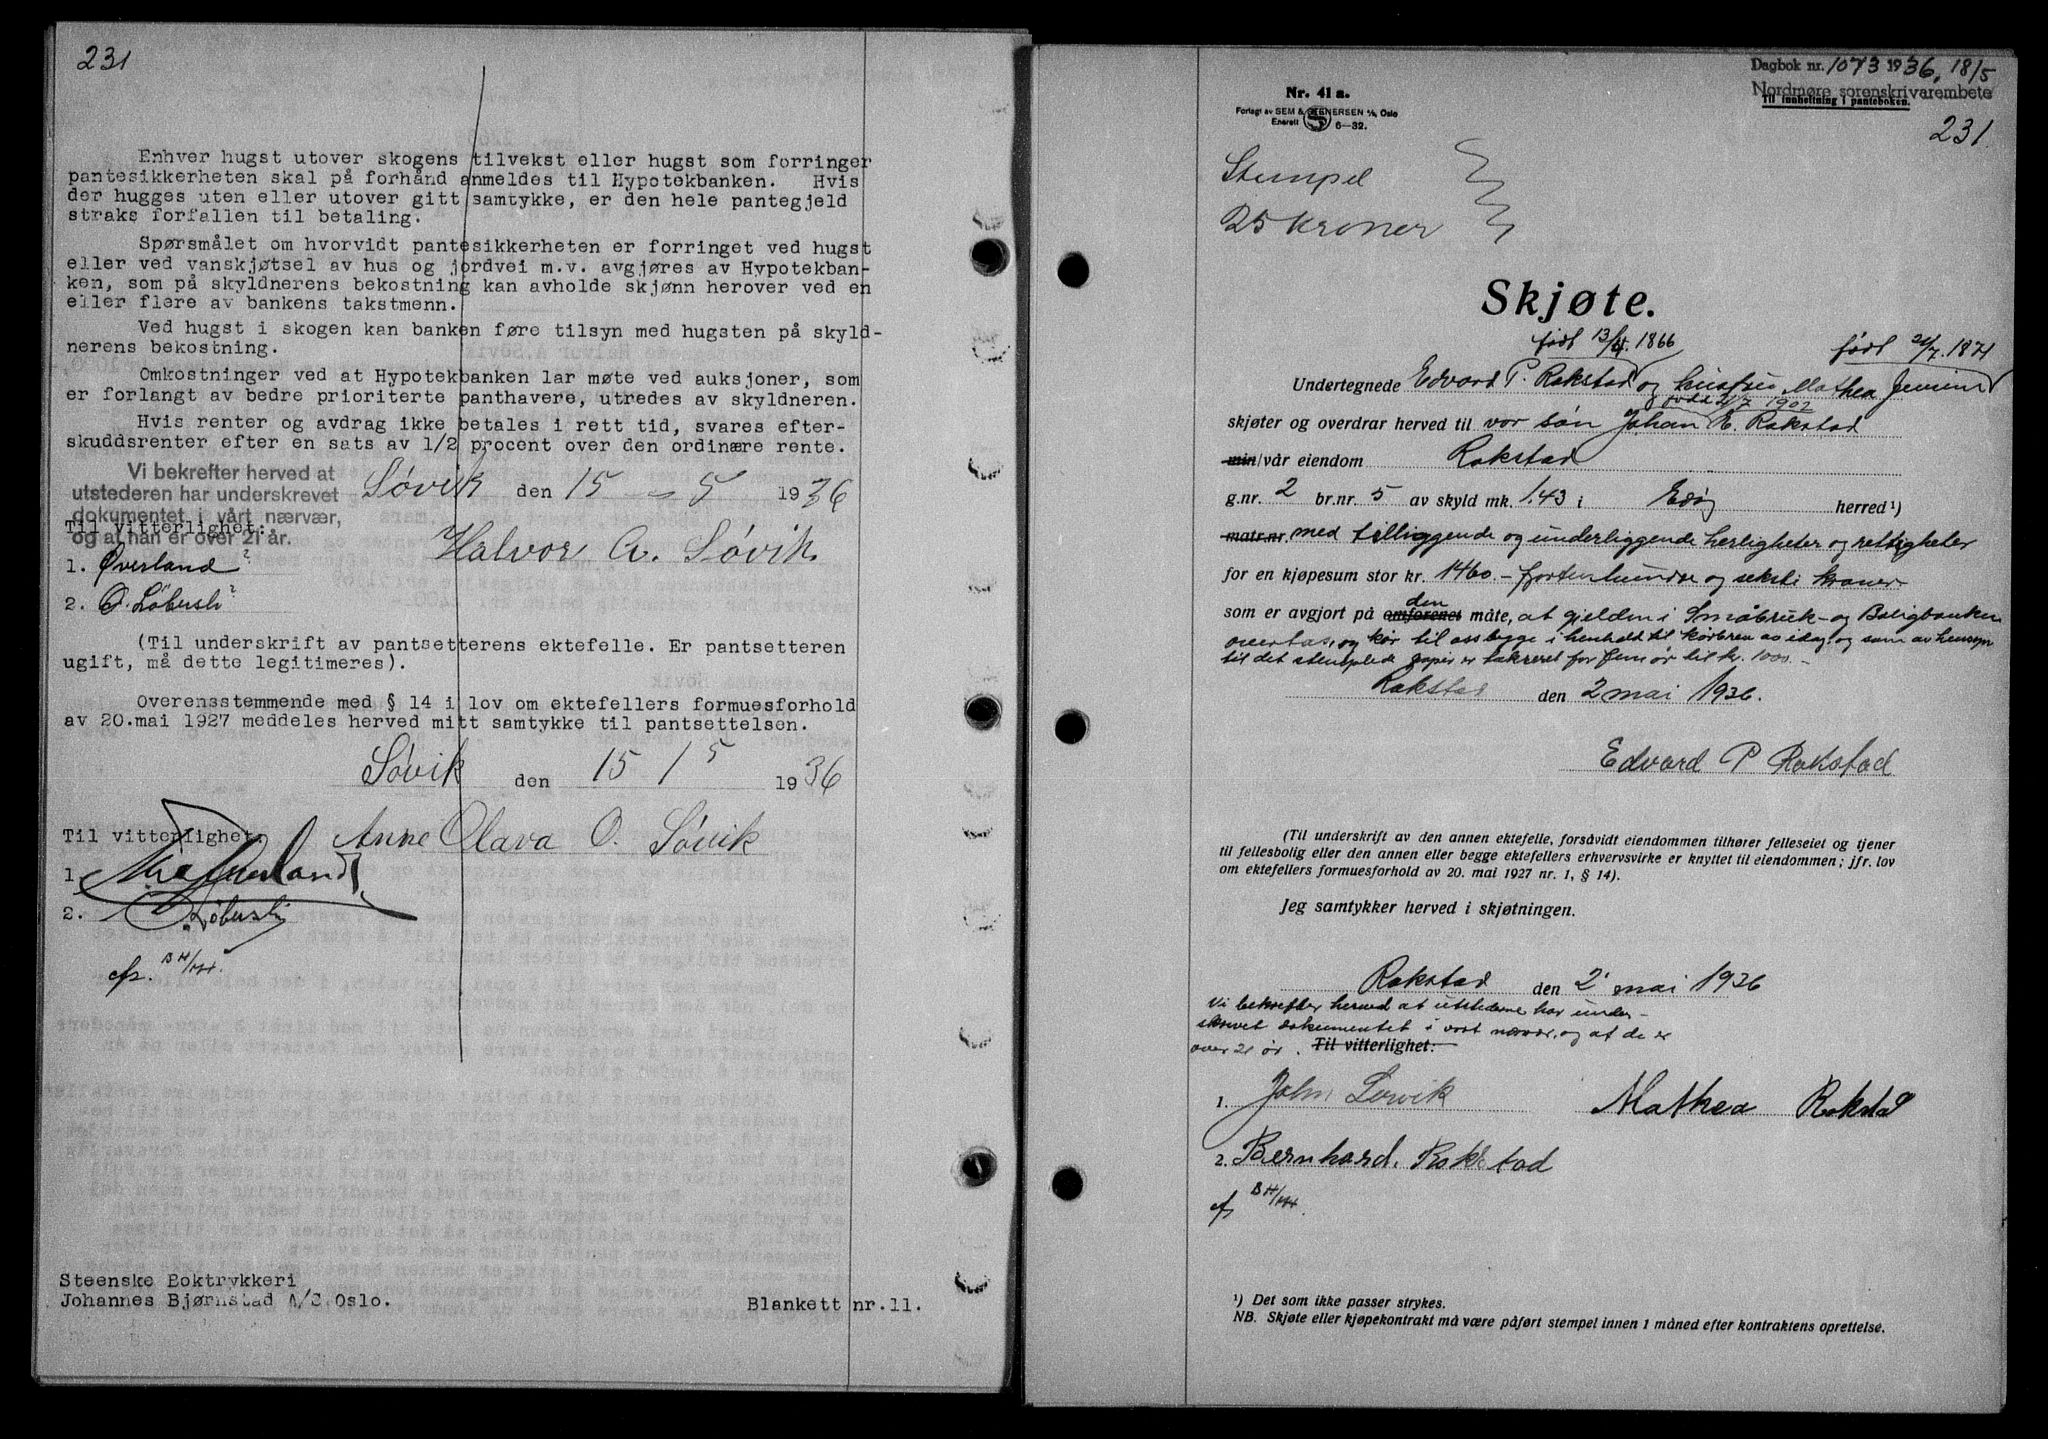 231
Enhver hugst utover skogens tilvekst eller hugst som forringer
pantesikkerheten skal på forhånd anmeldes til Hypotekbanken. Hvis
der hugges uten eller utover gitt samtykke, er den hele pantegjeld
straks forfallen til betaling.
Spørsmålet om hvorvidt pantesikkerheten er forringet ved hugst
eller ved vanskjøtsel av hus og jordvei m.v. avgjøres av Hypotekban-
ken, som på skyldnerens bekostning kan avholde skjønn herover ved en
eller flere av bankens takstmenn.
Ved hugst i skogen kan banken føre tilsyn med hugsten på skyld-
nerens bekostning.
Omkostninger ved at Hypotekbanken lar møte ved auksjoner, som
er forlangt av bedre prioriterte panthavere, utredes av skyldneren.
Hvis renter og avdrag ikke betales i rett tid, svares efter-
skuddsrenter efter en sats av 1/2 procent over den ordinære rente.
Vi bekrefter herved at
utstederen har underskrevet
dokumentet i vårt nærvær,
og at han er over 21 år.
Søvik den 15 - 5 1936
Til vitterlighet:
Halvor A. Søvik
1. Øverland?
2. O. Løbersli?
(Til underskrift av pantsetterens ektefelle. Er pantsetteren
ugift, må dette legitimeres).
Overensstemmende med § 14 i lov om ektefellers formuesforhold
av 20.mai 1927 meddeles herved mitt samtykke til pantsettelsen.
Søvik den 15 / 5 1936
Til vitterlighet.
Anne Olava O. Søvik
1.
2. O. Løbersli
Steenske Boktrykkeri
Johannes Bjørnstad A/S Oslo.
Blankett nr. 11.
Dagbok nr. 1073 1936, 18/5
Nordmøre sorenskrivarembete
Til innheftning i panteboken.
231
Nr. 41 a.
Forlagt av SEM & STENERSEN A/S, Oslo
Enerett S 6-32.
Stempel
25 kroner
Skjøte.
født 13/4 1866 født 21/7. 1871
Undertegnede Edvard P. Rokstad og hustru Mathea Jensine
født 2/7 1902
skjøter og overdrar herved til vor søn Johan E. Rokstad
min/vår eiendom Rokstad
g.nr. 2 br.nr. 5 av skyld mk. 1.43 i Edøy herred ¹)
matr.nr. med tilliggende og underliggende herligheter og rettigheter
for en kjøpesum stor kr. 1460.- fjortenhundre og seksti kroner
som er avgjort på omforenet den måte, at gjelden i Småbruk- og Boligbanken
overtas, og kår til oss begge i henhold til kårbrev av idag. og som av hensyn
til det stemplede papir er taksert for fem år til kr. 1000.-
Rokstad den 2 mai 1936.
Edvard P Rokstad
(Til underskrift av den annen ektefelle, forsåvidt eiendommen tilhører felleseiet og tjener
til fellesbolig eller den annen eller begge ektefellers erhvervsvirke er knyttet til eiendommen; jfr. lov
om ektefellers formuesforhold av 20. mai 1927 nr. 1, § 14).
Jeg samtykker herved i skjøtningen.
Rokstad den 2 mai 1936
Vi bekrefter herved at utstederne har under-
skrevet dokumentet i vort nærvær, og at de er
over 21 år. Til vitterlighet:
1. John Sørvik
Mathea Rokstad
2. Bernhard. Rokstad
¹) Det som ikke passer strykes.
NB. Skjøte eller kjøpekontrakt må være påført stempel innen 1 måned efter kontraktens oprettelse.